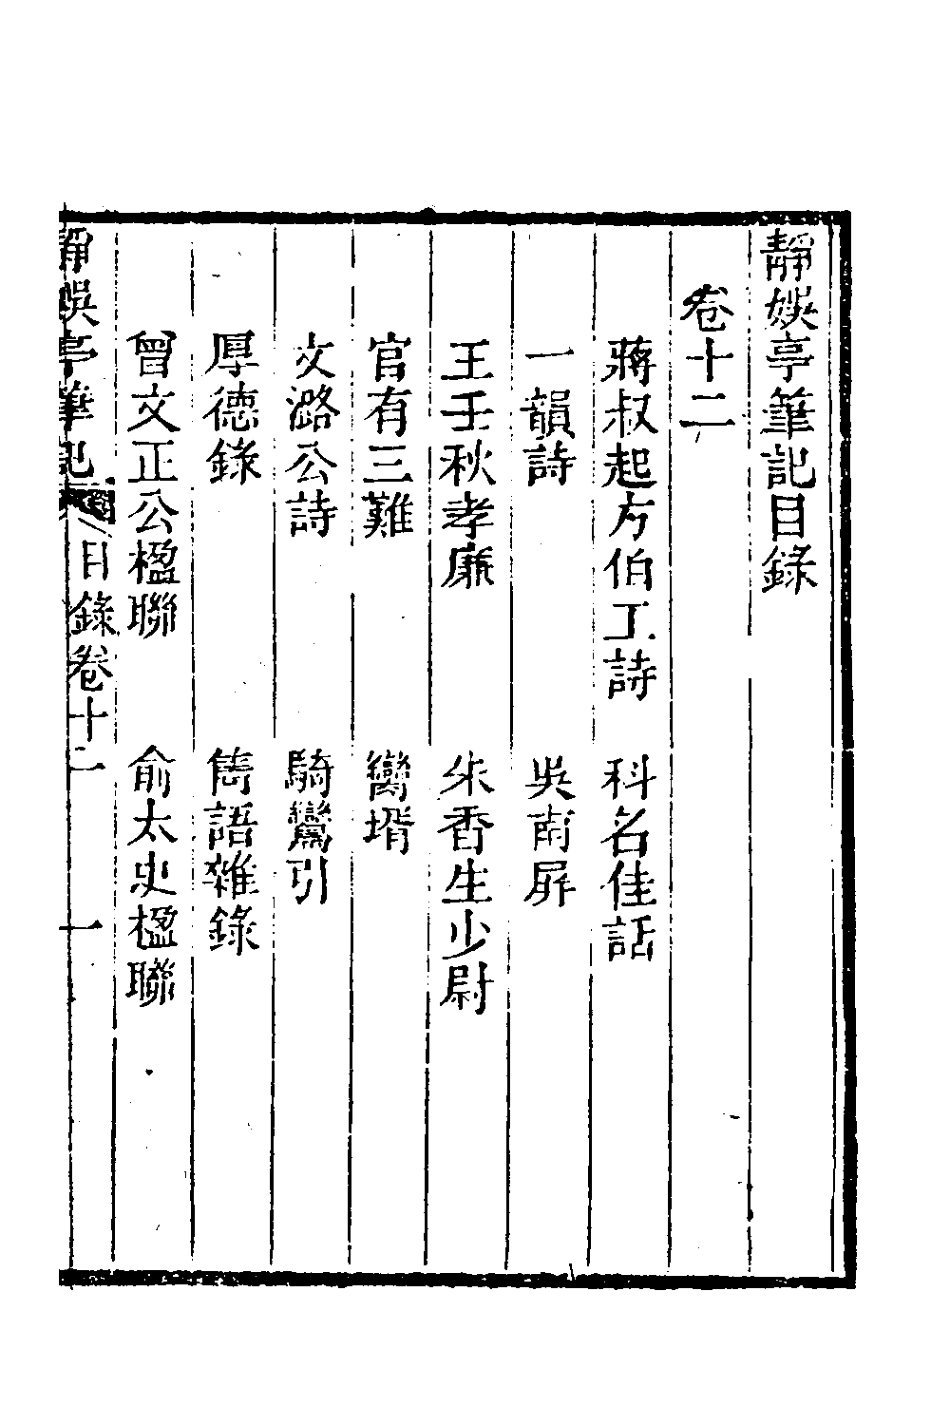 靜娛亭筆記目錄
卷十二
蔣叔起方伯工詩　科名佳話
一韻詩　吳南屏
王壬秋孝廉　朱香生少尉
官有三難　臠壻
文潞公詩　騎鸞引
厚德錄　雋語雜錄
曾文正公楹聯　俞太史楹聯
靜娛亭筆記　目錄卷十二　一